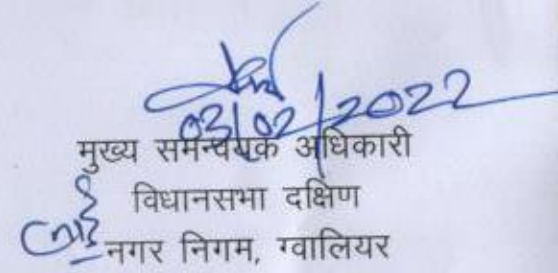 03/02/2022
मुख्य समन्वयक अधिकारी
विधानसभा दक्षिण
नगर निगम, ग्वालियर